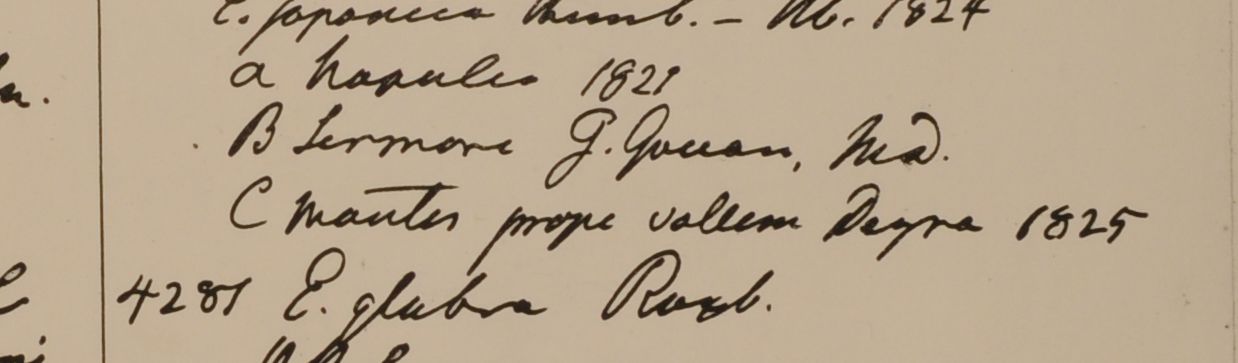 E. japonica Thunb. - Nb. 1824
a Napalia 1821
B Sermore G. Govan, Md.
C Montes prope vallem Deyra 1825
4281 E. glabra Roxb.